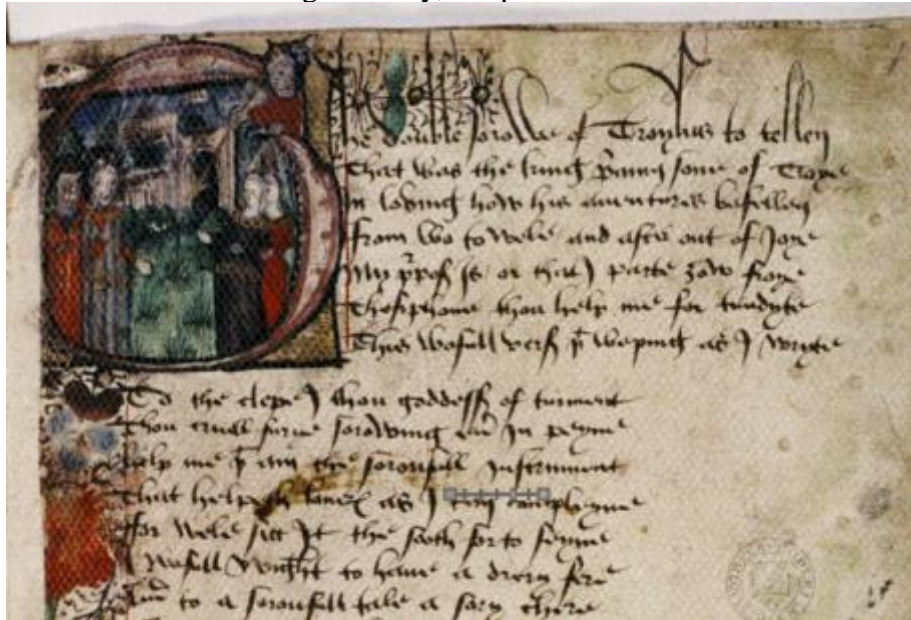 The double sorowe of Troylus to tellen
That was the king p̄amˢ sone of Troye
In loving how his aventures befellen
From wo to wele and after out of Joye
My ꝑpos is or that I parte ȝow froye
Thesiphone thou help me for tendyte
This wofull vers ꝥ weping as I wryte
To the clepe I thou goddess of turment
Thou cruell furie sorowing ever In peyne
Help me ꝥ am the sorowfull Instrument
That helpeth lovers as I can compleyne
For wele sitt It the soth for to seyne
A wofull wight to have a drery fere
And to a sorowfull tale a sory chere